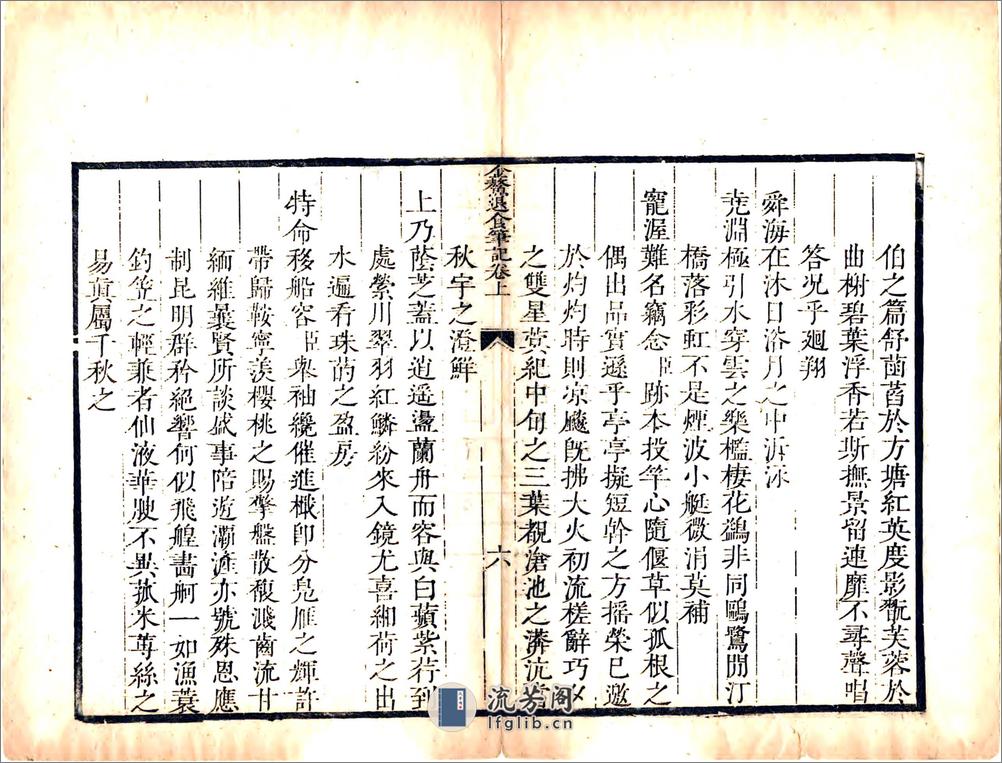 伯之篇舒菡萏於方塘紅英度影翫芙蓉於
曲榭碧葉浮香若斯撫景留連靡不尋聲唱
答況乎廻翔
舜海在沐日浴月之中游泳
堯淵極引水穿雲之樂檻棲花鷁非同鷗鷺閒汀
橋落彩虹不是煙波小艇微涓莫補
寵渥難名竊念臣跡本投竿心隨偃草似孤根之
偶出品實遜乎亭亭擬短幹之方搖榮已邀
於灼灼時則凉飈旣拂大火初流槎辭巧夕
之雙星蓂紀中旬之三葉覩滄池之漭沆
金鰲退食筆記卷上
六
秋宇之澄鮮
上乃蔭芝蓋以逍遥盪蘭舟而容與白蘋紫荇到
處縈川翠羽紅鱗紛來入鏡尤喜緗荷之出
水遍看珠菂之盈房
特命移船容臣褰袖纔催進檝卽分鳧雁之輝許
帶歸鞍寧羡櫻桃之賜擎盤散馥濺齒流甘
緬維曩賢所談盛事陪遊灝滻亦號殊恩應
制昆明群矜絕響何似飛艎畵舸一如漁蓑
釣笠之輕乗者仙液華腴不異菰米蓴絲之
易貢屬千秋之
流芳阁
lfglib.cn